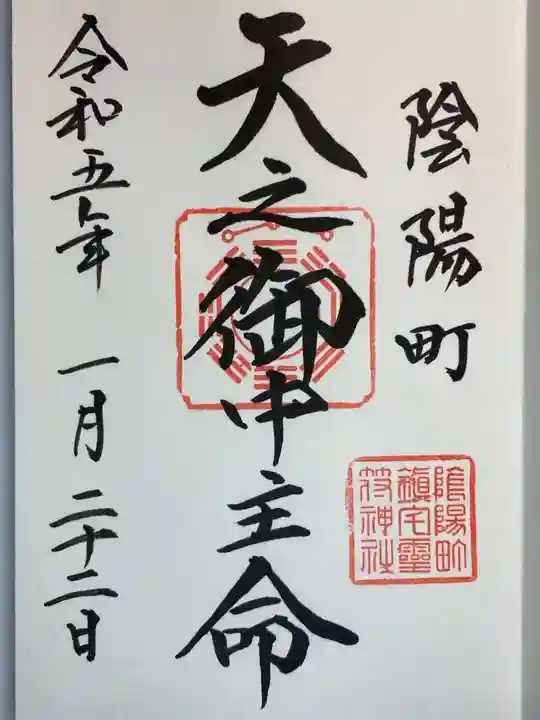 陰陽町
天之御中主命
令和五年 一月二十二日
陰陽町
鎮宅霊
符神社